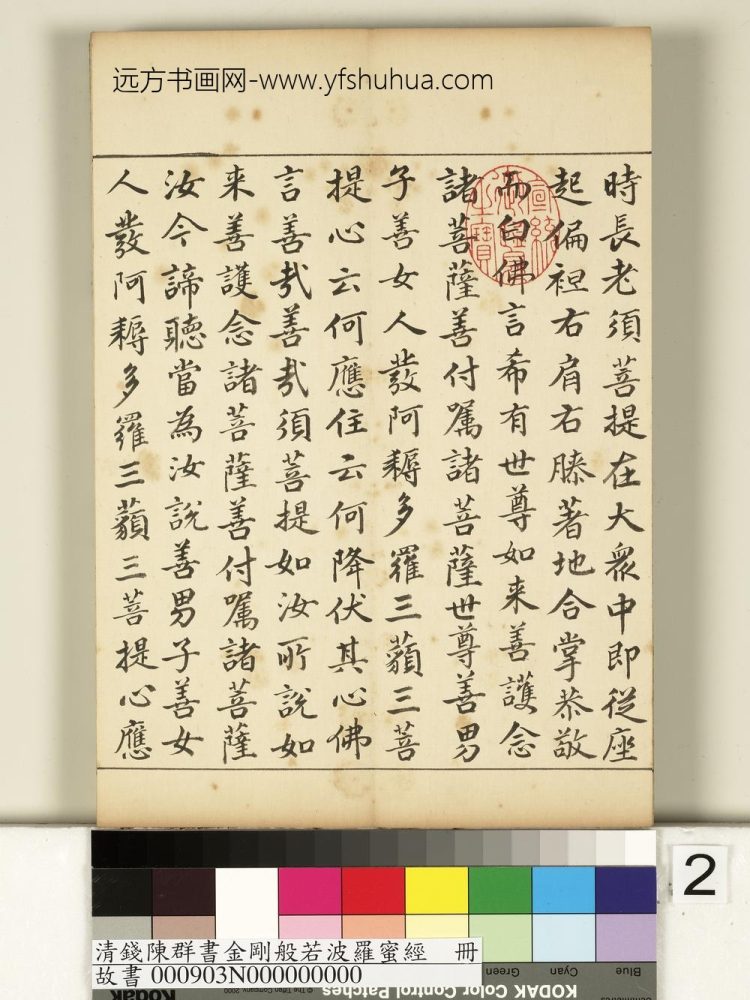 远方书画网-www.yfshuhua.com
時長老須菩提在大衆中即從座
起偏袒右肩右膝著地合掌恭敬
而白佛言希有世尊如来善護念
諸菩薩善付嘱諸菩薩世尊善男
子善女人發阿耨多羅三藐三菩
提心云何應住云何降伏其心佛
言善哉善哉須菩提如汝所說如
来善護念諸菩薩善付嘱諸菩薩
汝今諦聽當為汝說善男子善女
人發阿耨多羅三藐三菩提心應
宣統御覽之寶
2
清錢陳群書金剛般若波羅蜜經 冊
故書 000903N000000000
Green
Cyan
Blue
Kodak
© The Tiffen Company, 2000
KODAK Color Control Patches